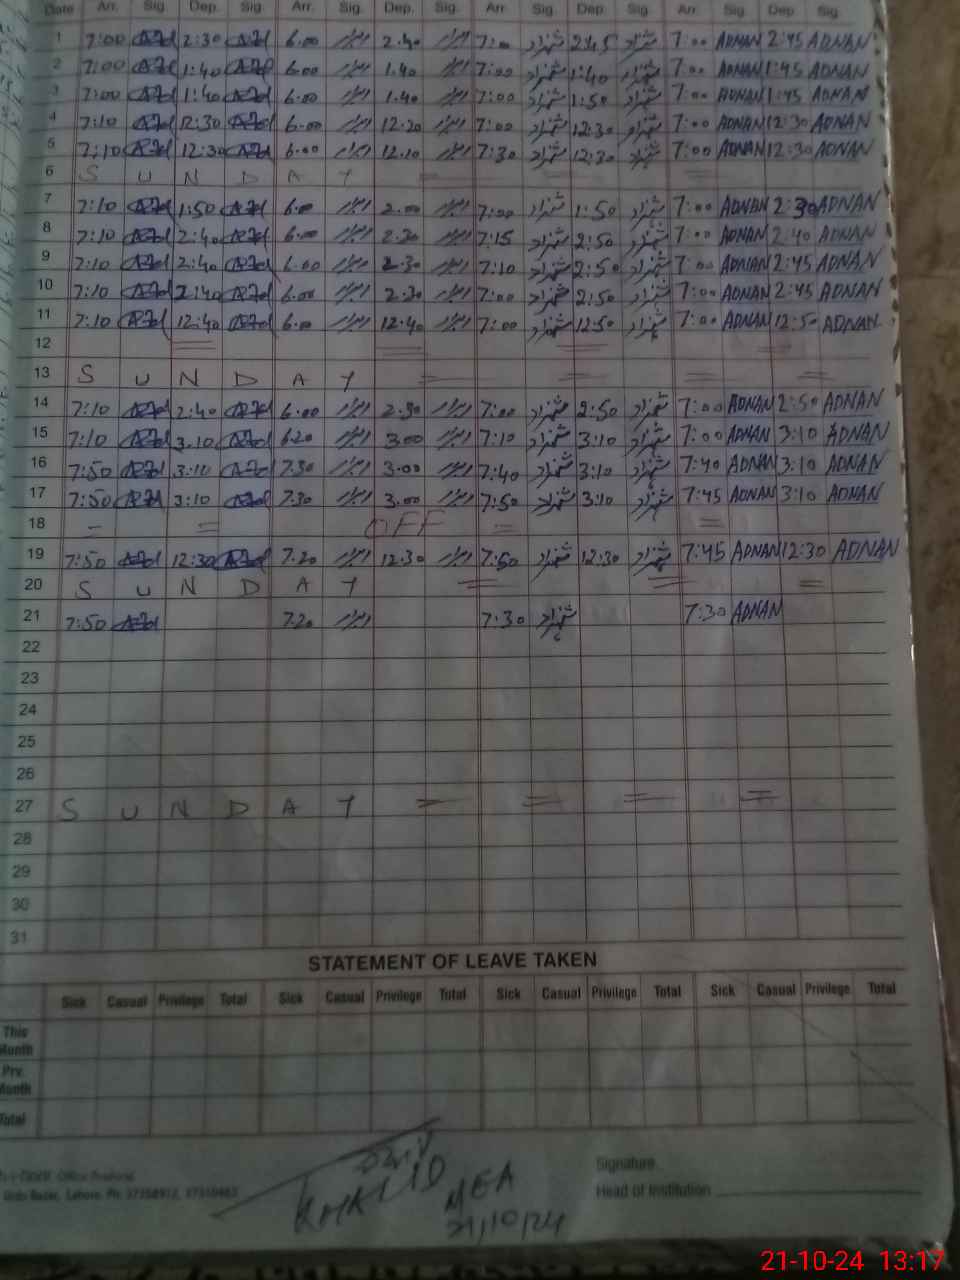 Date Arr. Sig. Dep. Sig. Arr. Sig. Dep. Sig. Arr. Sig. Dep. Sig. Arr. Sig. Dep Sig
1 7:00 2:30 6.00 2.40 7:00 شہزاد 2:45 شہزاد 7:00 ADNAN 2:45 ADNAN
2 7:00 1:40 6.00 1.40 7:00 شہزاد 1:40 شہزاد 7:00 ADNAN 1:45 ADNAN
3 7:00 1:40 6.00 1.40 7:00 شہزاد 1:50 شہزاد 7:00 ADNAN 1:45 ADNAN
4 7:10 12:30 6.00 12.20 7:00 شہزاد 12:30 شہزاد 7:00 ADNAN 12:30 ADNAN
5 7:10 12:30 6.00 12.10 7:30 شہزاد 12:30 شہزاد 7:00 ADNAN 12:30 ADNAN
6 S U N D A Y
7 7:10 1:50 6.00 2.00 7:00 شہزاد 1:50 شہزاد 7:00 ADNAN 2:30 ADNAN
8 7:10 2:40 6.00 2.20 7:15 شہزاد 2:50 شہزاد 7:00 ADNAN 2:40 ADNAN
9 7:10 2:40 6.00 2.30 7:10 شہزاد 2:50 شہزاد 7:00 ADNAN 2:45 ADNAN
10 7:10 2:40 6.00 2.30 7:00 شہزاد 2:50 شہزاد 7:00 ADNAN 2:45 ADNAN
11 7:10 12:40 6.00 12.40 7:00 شہزاد 12:50 شہزاد 7:00 ADNAN 12:50 ADNAN
12
13 S U N D A Y
14 7:10 2:40 6.00 2.30 7:00 شہزاد 2:50 شہزاد 7:00 ADNAN 2:50 ADNAN
15 7:10 3:10 6.20 3.00 7:10 شہزاد 3:10 شہزاد 7:00 ADNAN 3:10 ADNAN
16 7:50 3:10 7.30 3.00 7:40 شہزاد 3:10 شہزاد 7:40 ADNAN 3:10 ADNAN
17 7:50 3:10 7.30 3.00 7:50 شہزاد 3:10 شہزاد 7:45 ADNAN 3:10 ADNAN
18 = = OFF = =
19 7:50 12:30 7.20 12.30 7:50 شہزاد 12:30 شہزاد 7:45 ADNAN 12:30 ADNAN
20 S U N D A Y
21 7:50 7.20 7:30 شہزاد 7:30 ADNAN
22
23
24
25
26
27 S U N D A Y
28
29
30
31
STATEMENT OF LEAVE TAKEN
Sick Casual Privilege Total Sick Casual Privilege Total Sick Casual Privilege Total Sick Casual Privilege Total
This Month
Prv. Month
Total
Signature
Head of Institution
Urdu Bazar, Lahore. Ph:
KHALID
MEA
21/10/24
21-10-24 13:17